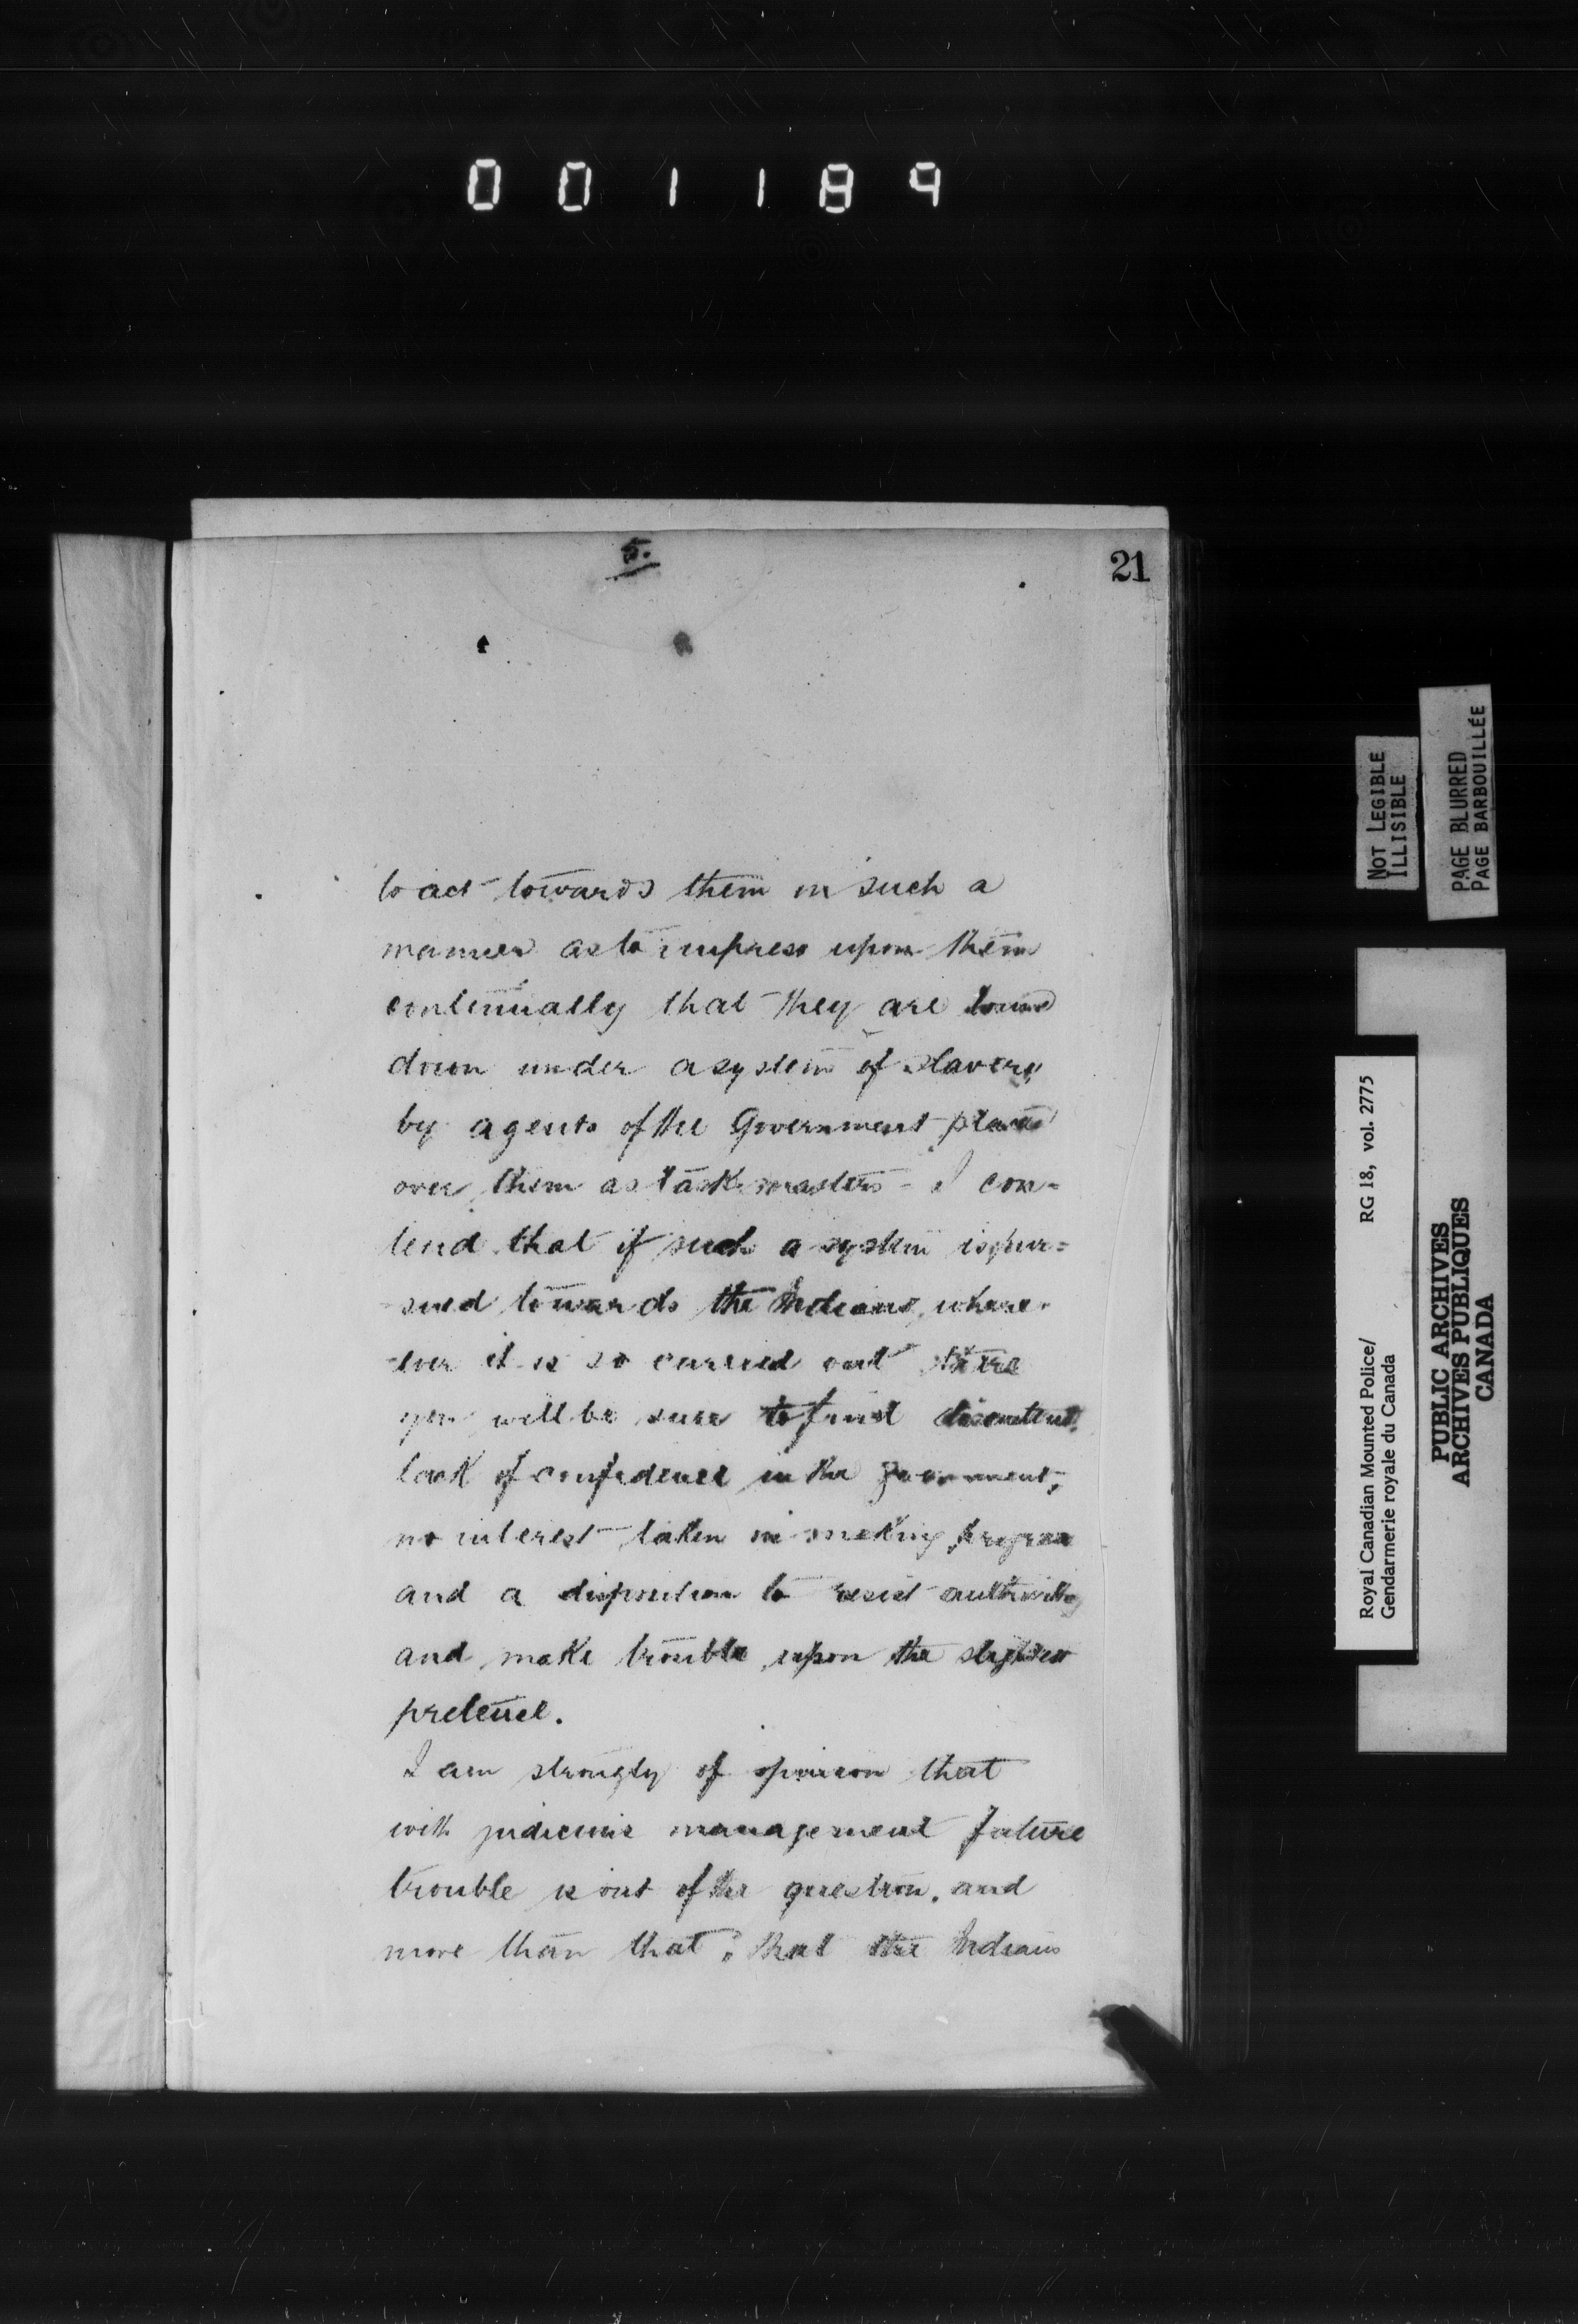 001189
5.
21
to act towards them in such a
manner as to impress upon them
continually that they are bound
down under a system of slavery
by agents of the Government placed
over them as task masters - I con=
tend that if such a system is pur=
-sued towards the Indians, where-
-ever it is so carried out there
you will be sure to find discontent,
lack of confidence in the government,
no interest taken in making progress
and a disposition to resist authority
and make trouble upon the slightest
pretence.
I am strongly of opinion that
with judicious management future
trouble is out of the question, and
more than that, that the Indians
NOT LEGIBLE
ILLISIBLE
PAGE BLURRED
PAGE BARBOUILLÉE
Royal Canadian Mounted Police/
Gendarmerie royale du Canada
RG 18, vol. 2775
PUBLIC ARCHIVES
ARCHIVES PUBLIQUES
CANADA